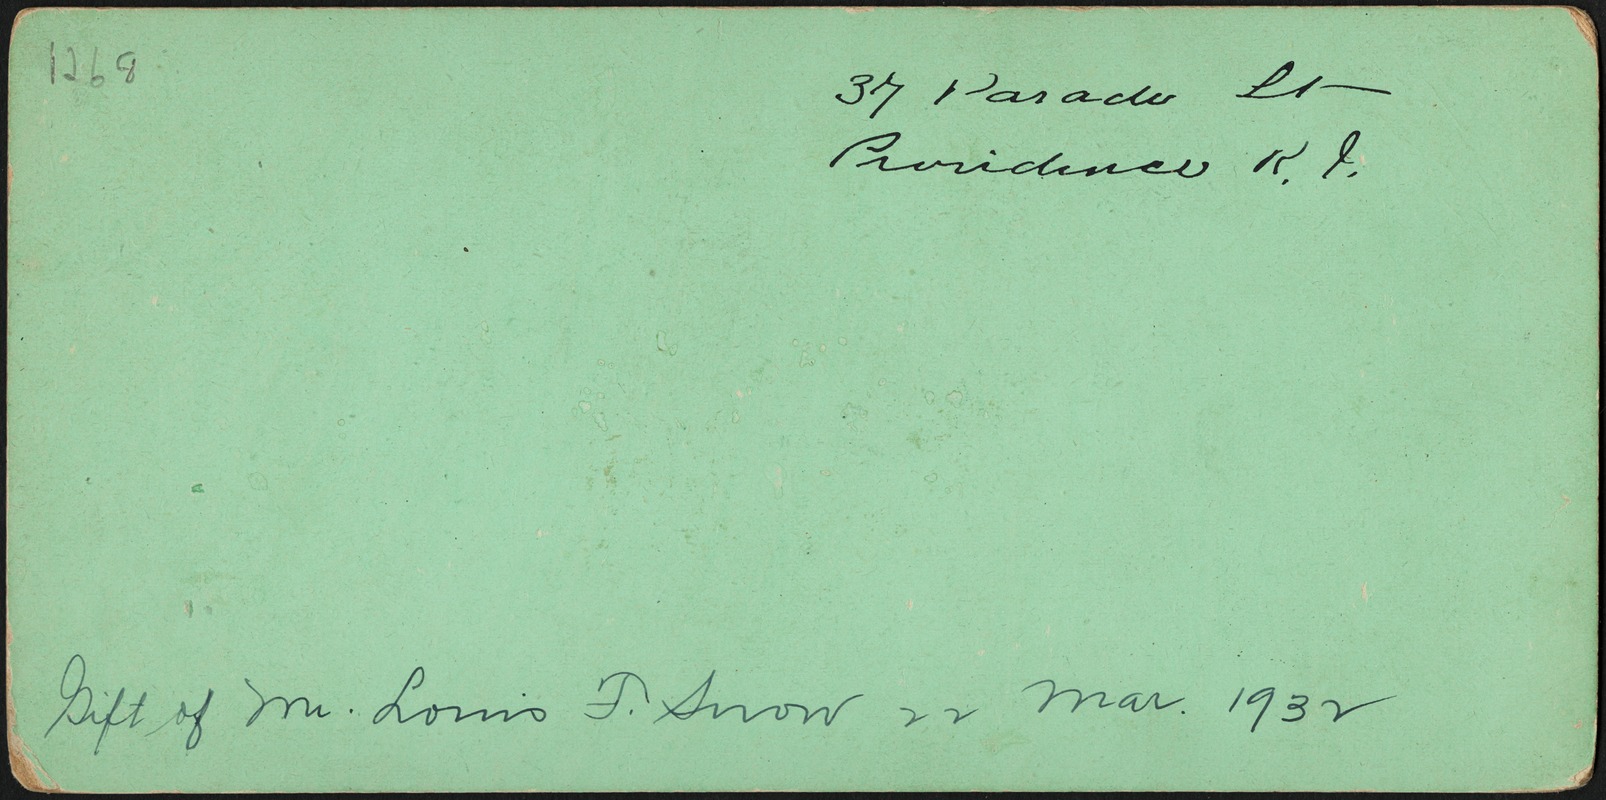 1268
37 Parade St
Providence R. I.
Gift of Mr. Louis F. Snow 22 Mar. 1932